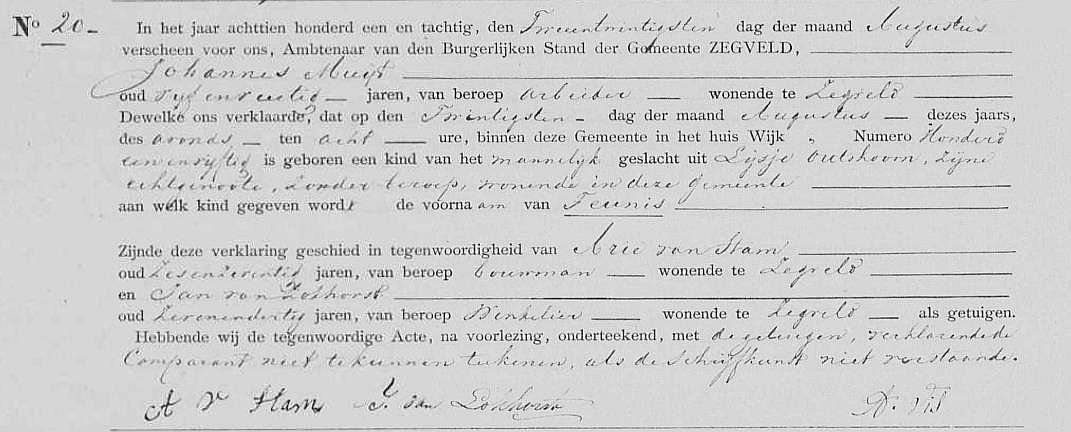 Nº 20-
In het jaar achttien honderd een en tachtig, den Tweeentwintigsten dag der maand Augustus
verscheen voor ons, Ambtenaar van den Burgerlijken Stand der Gemeente ZEGVELD,
Johannes
oud jaren, van beroep arbeider wonende te Zegveld
Dewelke ons verklaarde, dat op den Twintigsten dag der maand Augustus dezes jaars,
des avonds ten acht ure, binnen deze Gemeente in het huis Wijk . Numero Honderd
een en vijftig is geboren een kind van het mannelijk geslacht uit Lijsje Outshoorn, zijne
echtgenoote, zonder beroep, wonende in deze gemeente
aan welk kind gegeven wordt de voornaam van Teunis
Zijnde deze verklaring geschied in tegenwoordigheid van Arie van Ham
oud jaren, van beroep bouwman wonende te Zegveld
en Jan van Lokhorst
oud zevenendertig jaren, van beroep Winkelier wonende te Zegveld als getuigen.
Hebbende wij de tegenwoordige Acte, na voorlezing, onderteekend, met de getuigen, verklarende de
Comparant niet te kunnen teekenen, als de schrijfkunst niet verstaande.
A v Ham J. van Lokhorst